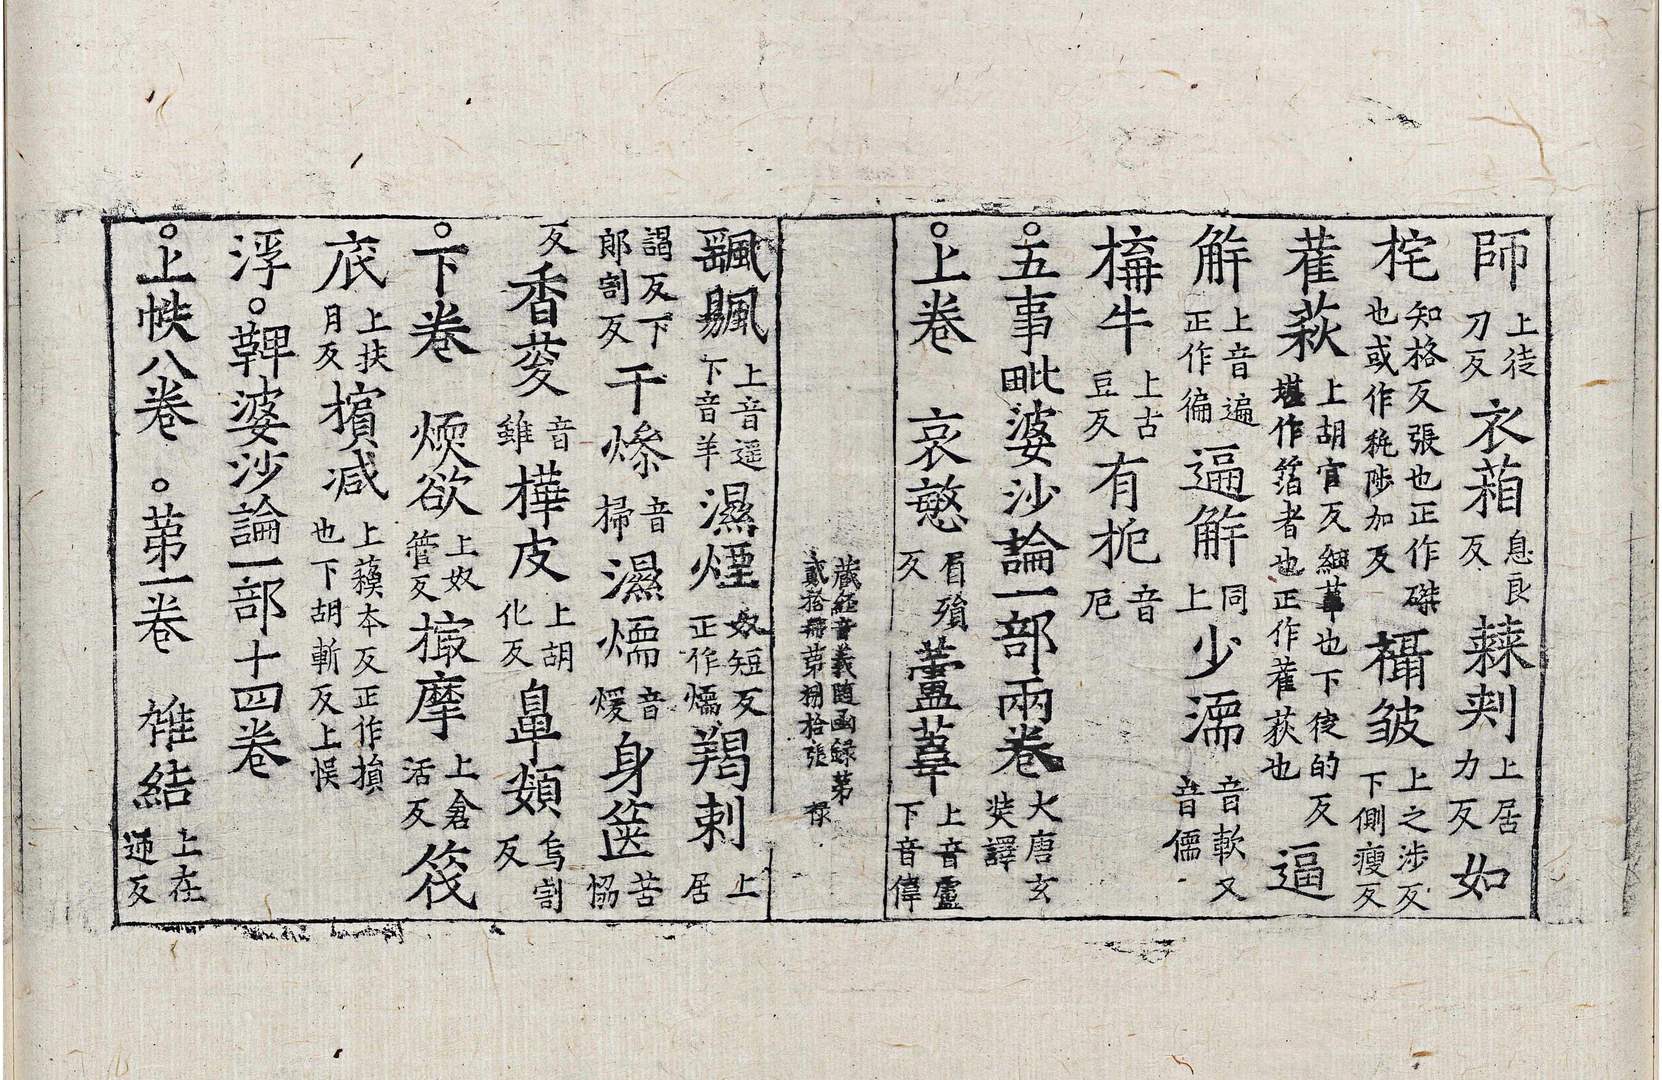 師上徒刀反衣葙息良反𣗥刾上居力反如
㧌知格反張也正作磔也或作秅陟加反攝皱上之涉反下側瘦反
雚萩上胡官反細葦也下徒的反堪作箔者也正作雚荻也逼
解上音遍正作徧逼解同上少濡音軟又音儒
構牛上古豆反有枙音厄
○五事毗婆沙論一部兩卷大唐玄奘譯
○上卷　哀愍眉殞反蘆葦上音盧下音偉
藏經音義隨函錄第
貳拾冊第捌拾張　祿
颻颺上音遥下音羊濕煙奴短反正作煗羯剌上居
謁反下郎割反干燥音掃濕煗音煖身篋苦協
反香荾音雖樺皮上胡化反鼻頞烏割反
○下卷　煗欲上奴管反撮摩上倉活反筏
底上扶月反損減上蘓本反正作損也下胡斬反上悮
浮○鞞婆沙論一部十四卷
○上帙八卷　○第一卷　雜結上在迊反